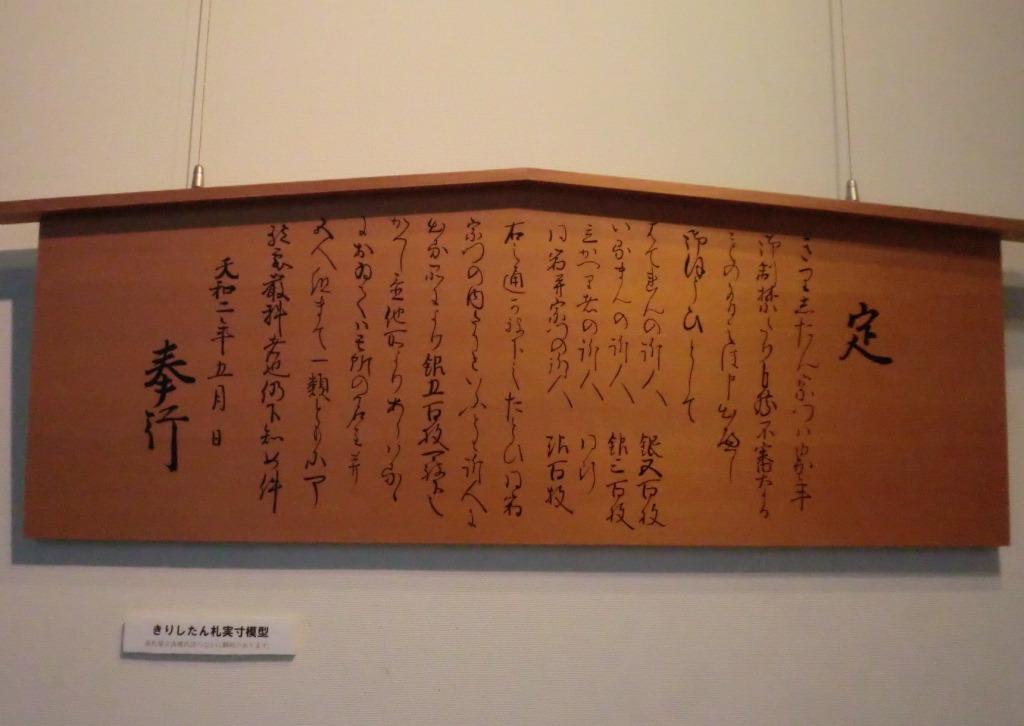 定
きりしたん宗門ハ累年
御制禁たり自然不審なる
ものあらは申出へし
御ほうひとして
はてれんの訴人 銀五百枚
いるまんの訴人 銀三百枚
立かへり者の訴人 同断
同宿并宗門の訴人 銀百枚
右之通可被下之たとひ同宿
宗門の内たりといふとも訴人に
出る品により銀五百枚可被下之
かくし置他所よりあらはるゝ
においてハ其所の名主并
五人組まて一類ともに可
被処厳科者也仍下知如件
天和二年五月 日
奉行
きりしたん札実寸模型